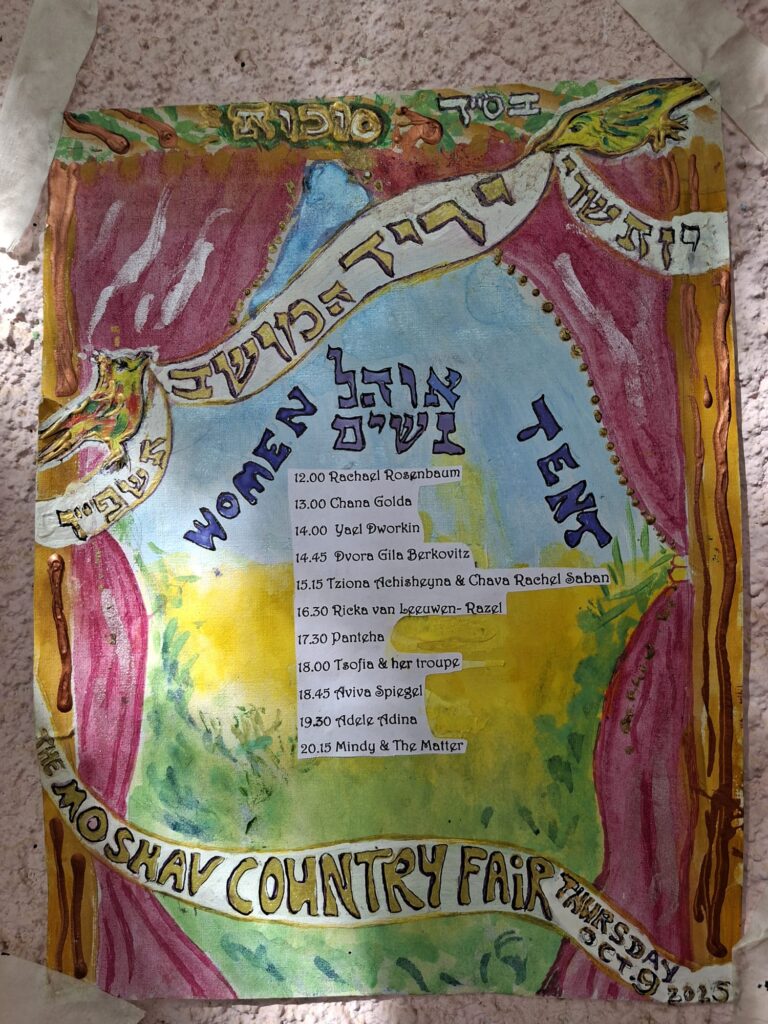 בס״ד
סוכות
יריד המושב
יז תשרי
תשפ״ו
WOMEN אוהל TENT
נשים
12.00 Rachael Rosenbaum
13.00 Chana Golda
14.00 Yael Dworkin
14.45 Dvora Gila Berkovitz
15.15 Tziona Achisheyna & Chava Rachel Saban
16.30 Ricka van Leeuwen- Razel
17.30 Panteha
18.00 Tsofia & her troupe
18.45 Aviva Spiegel
19.30 Adele Adina
20.15 Mindy & The Matter
THE MOSHAV COUNTRY FAIR
THURSDAY
OCT. 9
2025